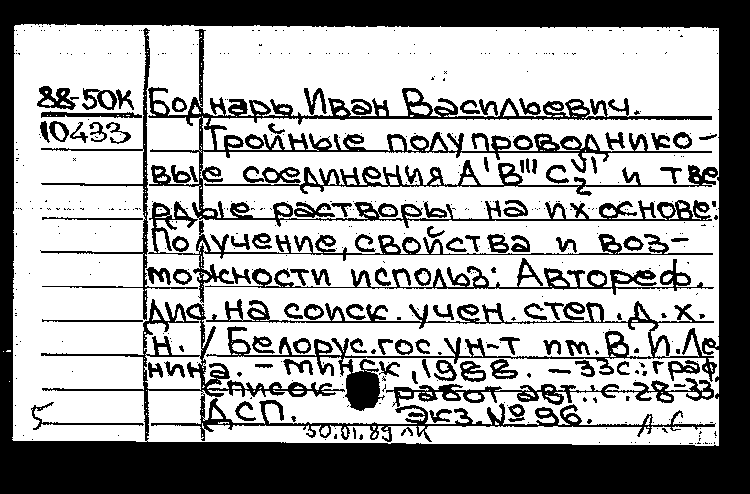 88-50К Боднарь, Иван Васильевич.
10433 Тройные полупроводнико-
вые соединения AᴵBᴵᴵᴵC₂ⱽᴵ и тве
рдые растворы на их основе:
Получение, свойства и воз-
можности использ: Автореф.
дис. на соиск. учен. степ. д. х.
н. / Белорус. гос. ун-т им. В. И. Ле
нина. - Минск, 1988. - 33с.: граф
Список работ авт.: с. 28-33.
5 ДСП. Экз. № 96.
30.01.89 лк